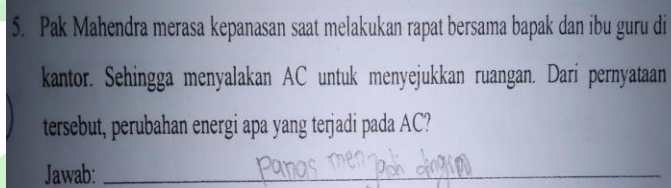 5. Pak Mahendra merasa kepanasan saat melakukan rapat bersama bapak dan ibu guru di
kantor. Sehingga menyalakan AC untuk menyejukkan ruangan. Dari pernyataan
tersebut, perubahan energi apa yang terjadi pada AC?
Jawab: panas menjadi dingin